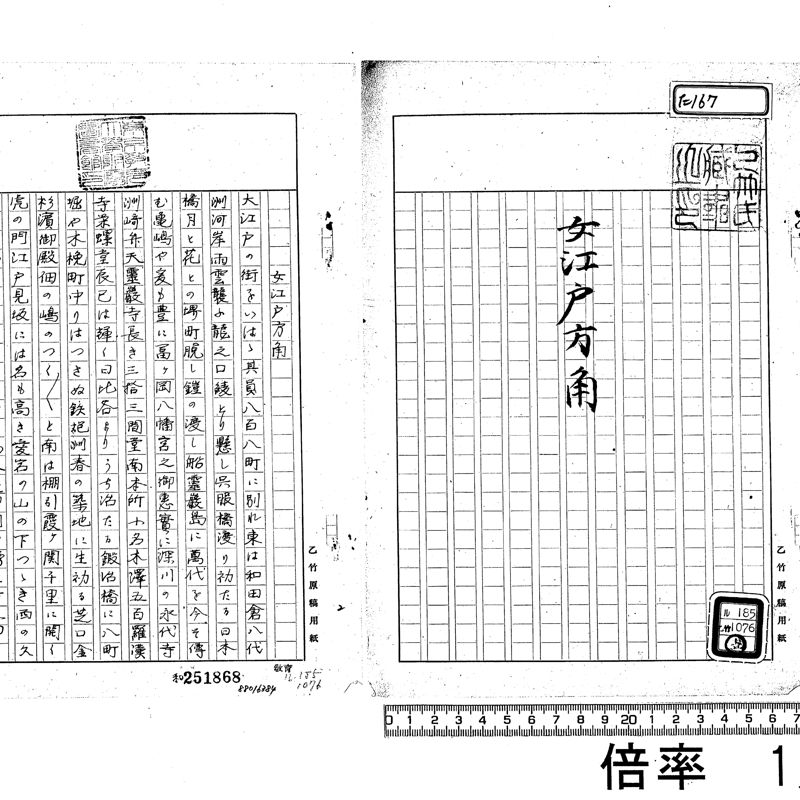 た167
女江戸方角
ル185
乙竹1076
乙竹原稿用紙
女江戸方角
大江戸の街をいはゝ其員八百八町に別れ東は和田倉八代
洲河岸雨雲襲ふ龍之口綾とり懸し呉服橋渡り初たる日本
橋月と花との堺町脱し鎧の渡し船霊巌島に萬代を今そ傳
む亀嶋や爰も豊に高ヶ岡八幡宮之御恵實に深川の永代寺
洲崎弁天霊巌寺長き三拾三間堂南本所小名木澤五百羅漢
寺栄螺堂辰巳は輝く日比谷よりうち治たる鍛冶橋に八町
堀や木挽町中りはつきぬ鉄炮洲春の築地に生初る芝口金
杉濱御殿佃の嶋のつく〱と南は棚引霞ヶ関千里に聞く
虎の門江戸見坂には名も高き愛宕の山の下つゝき西の久
乙竹原稿用紙
和251868
教育
ル185
1076
88016384
0 1 2 3 4 5 6 7 8 9 20 1 2 3 4 5 6 7
倍率 1